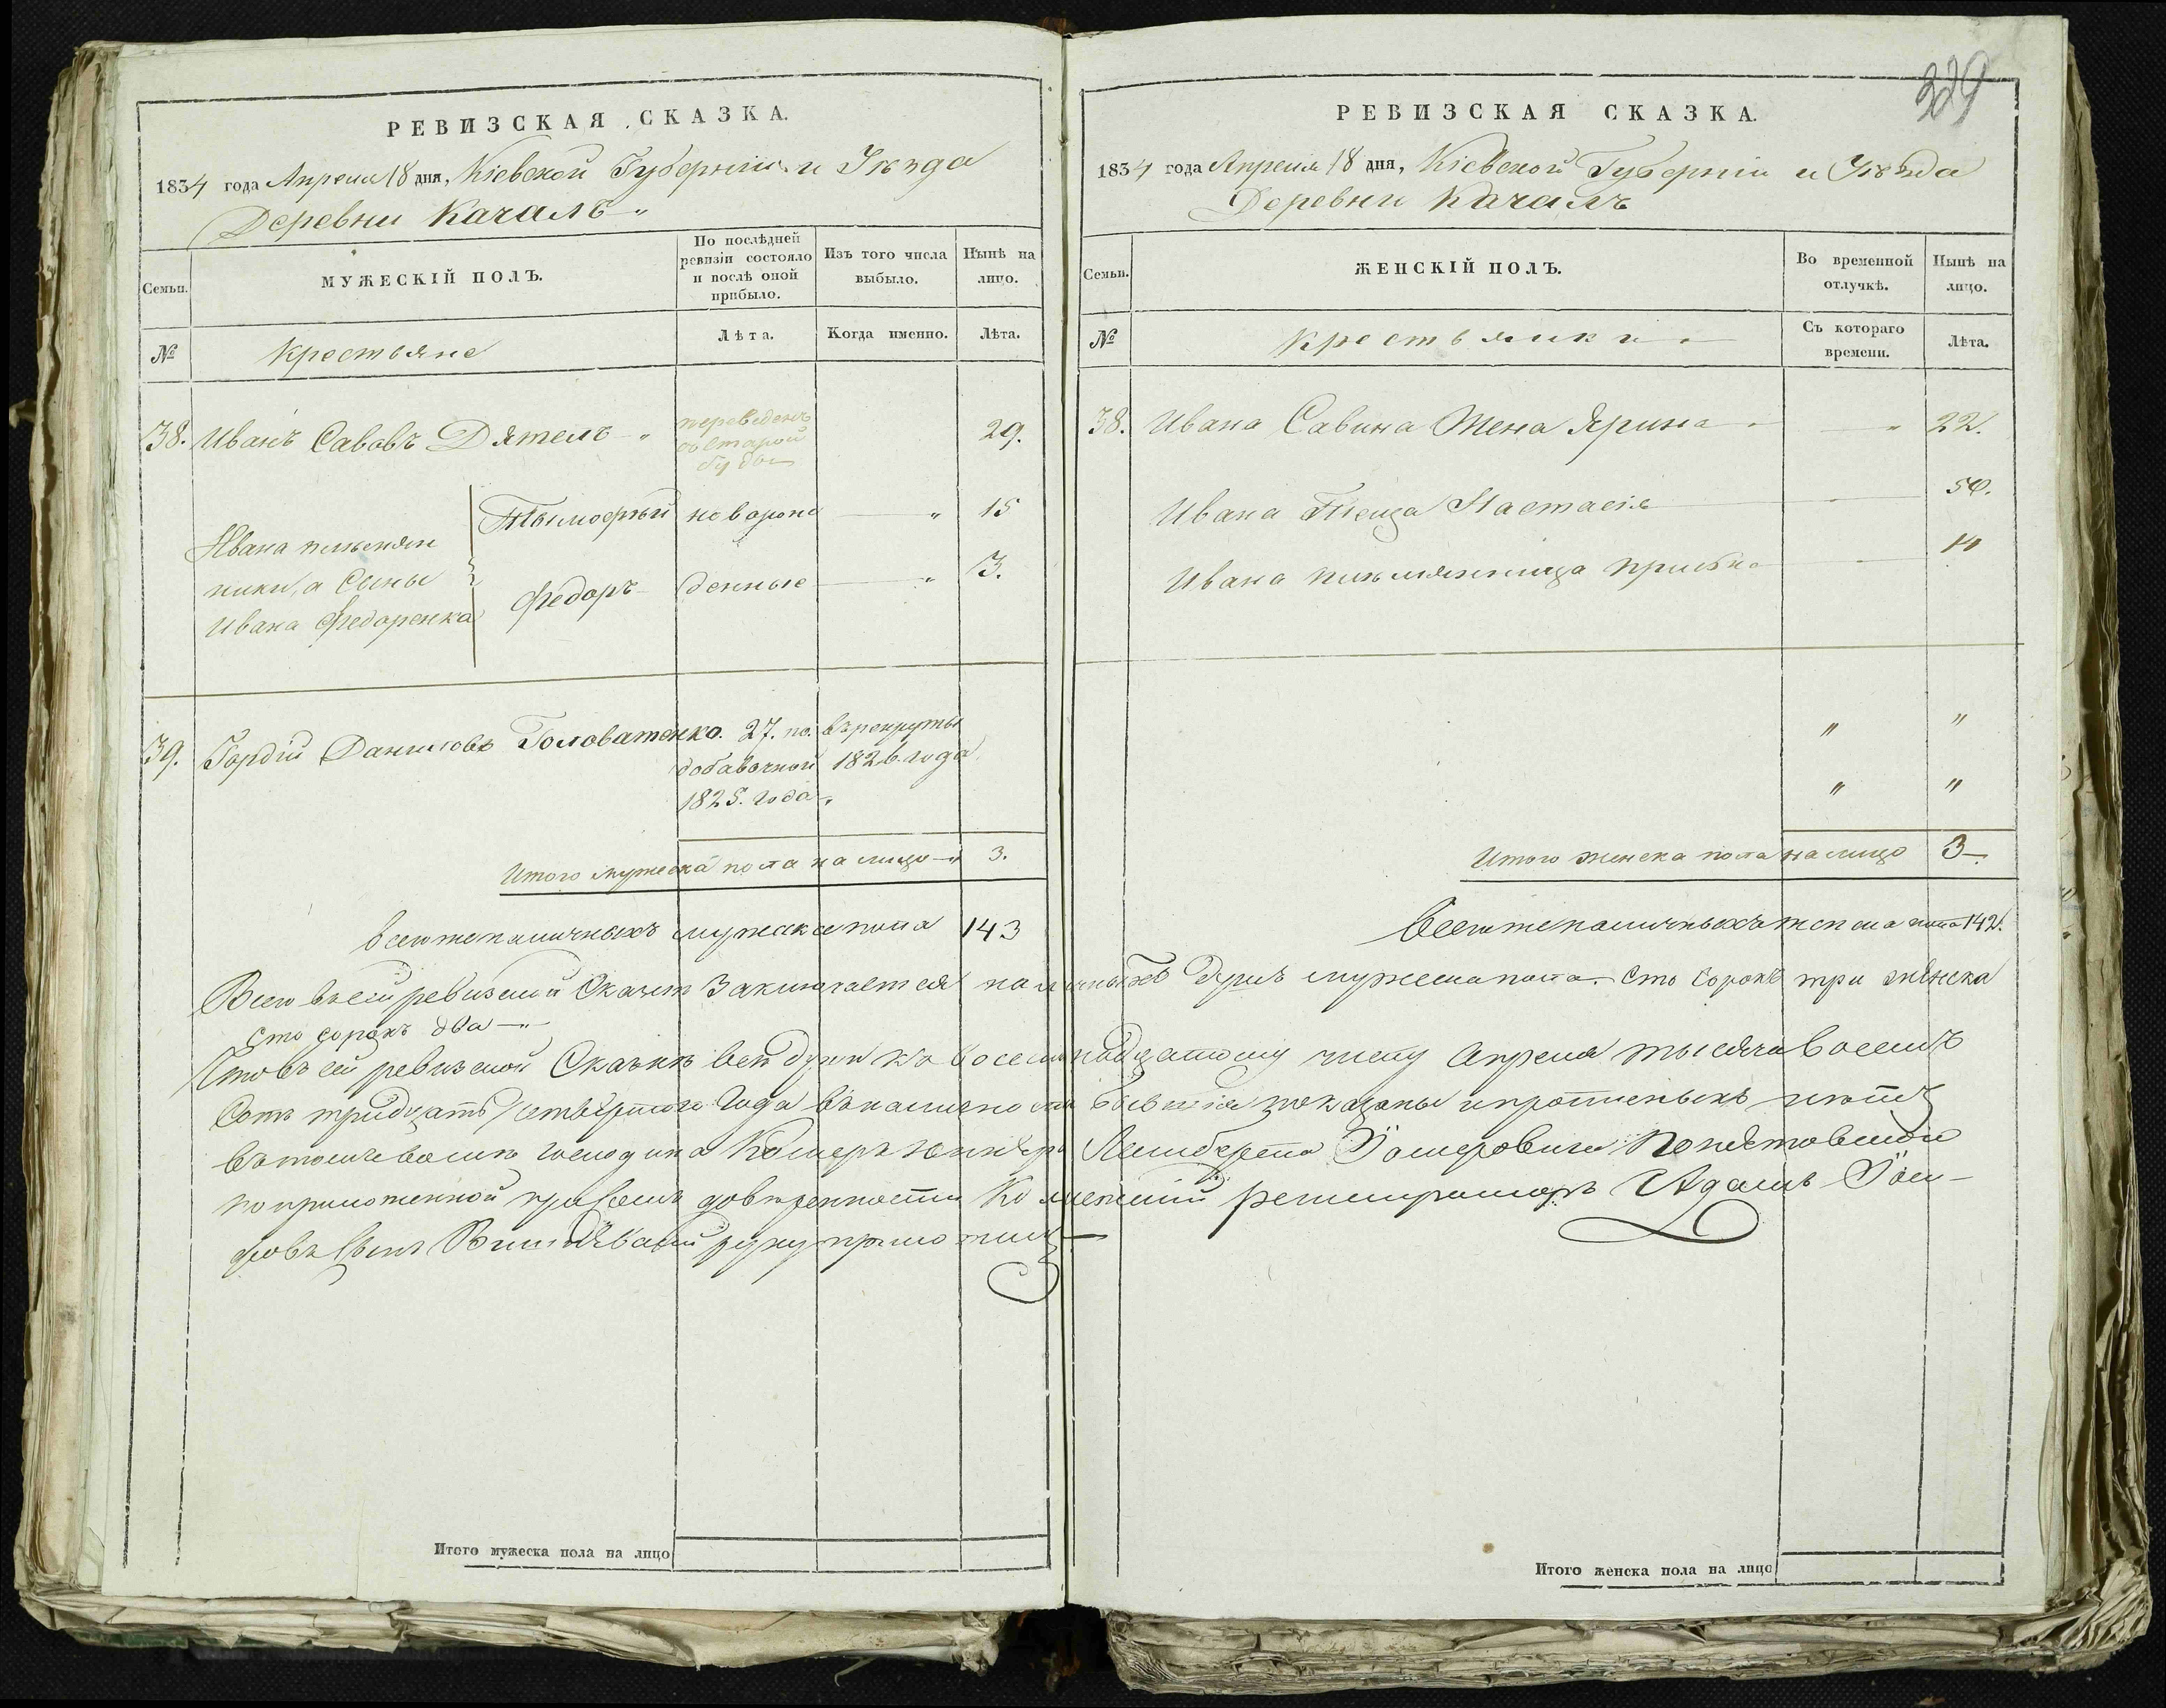 РЕВИЗСКАЯ СКАЗКА.
1834 года Апреля 18 дня, Кіевской Губерніи и Уѣзда
Деревни Качалъ „
Семьи.
МУЖЕСКІЙ ПОЛЪ.
По послѣдней ревизіи состояло и послѣ оной прибыло.
Изъ того числа выбыло.
Нынѣ на лицо.
№
Крестьяне
Лѣта.
Когда именно.
Лѣта.
38. Иванъ Савовъ Дятелъ „ переведенъ
29.
Тымофѣй новорож „ 15
Ивана племян
ники, а Сыны
Ивана Федоренка
Федоръ денные „ 3.
39. Гордій Даниловъ Головатенко. 27. по. въ рекруты
добавочной 1826. года
1825. года „
Итого мужеска пола на лицо „ 3.
Всего же наличныхъ мужска пола 143
329
РЕВИЗСКАЯ СКАЗКА.
1834 года Апреля 18 дня, Кіевской Губерніи и Уѣзда
Деревни Качалъ
Семьи.
ЖЕНСКІЙ ПОЛЪ.
Во временной отлучкѣ.
Нынѣ на лицо.
№
Крестьянки
Съ котораго времени.
Лѣта.
38. Ивана Савина Жена Ярина „ 22.
Ивана Теща Настасія 50.
Ивана племянница
„ „
„ „
Итого женска пола на лицо 3
Всего же наличныхъ женска пола 142.
Всего въ сей ревизской Сказкѣ Заключается наличныхъ душъ мужеска пола. Сто сорокъ три женска
Сто сорокъ два „
Что въ сей ревизской Сказкѣ всѣ души къ восемнадцатому числу Апреля тысяча восемъ
Сотъ тридцать четвертого Года въ наличности бывшія показаны и пропиленыхъ нѣтъ
въ томъ вместо господина Камеръ юнкера
по приложенной при семъ довѣренности Колежскій регистраторъ Адамъ
Сынъ руку приложилъ
Итого мужеска пола на лицо
Итого женска пола на лицо